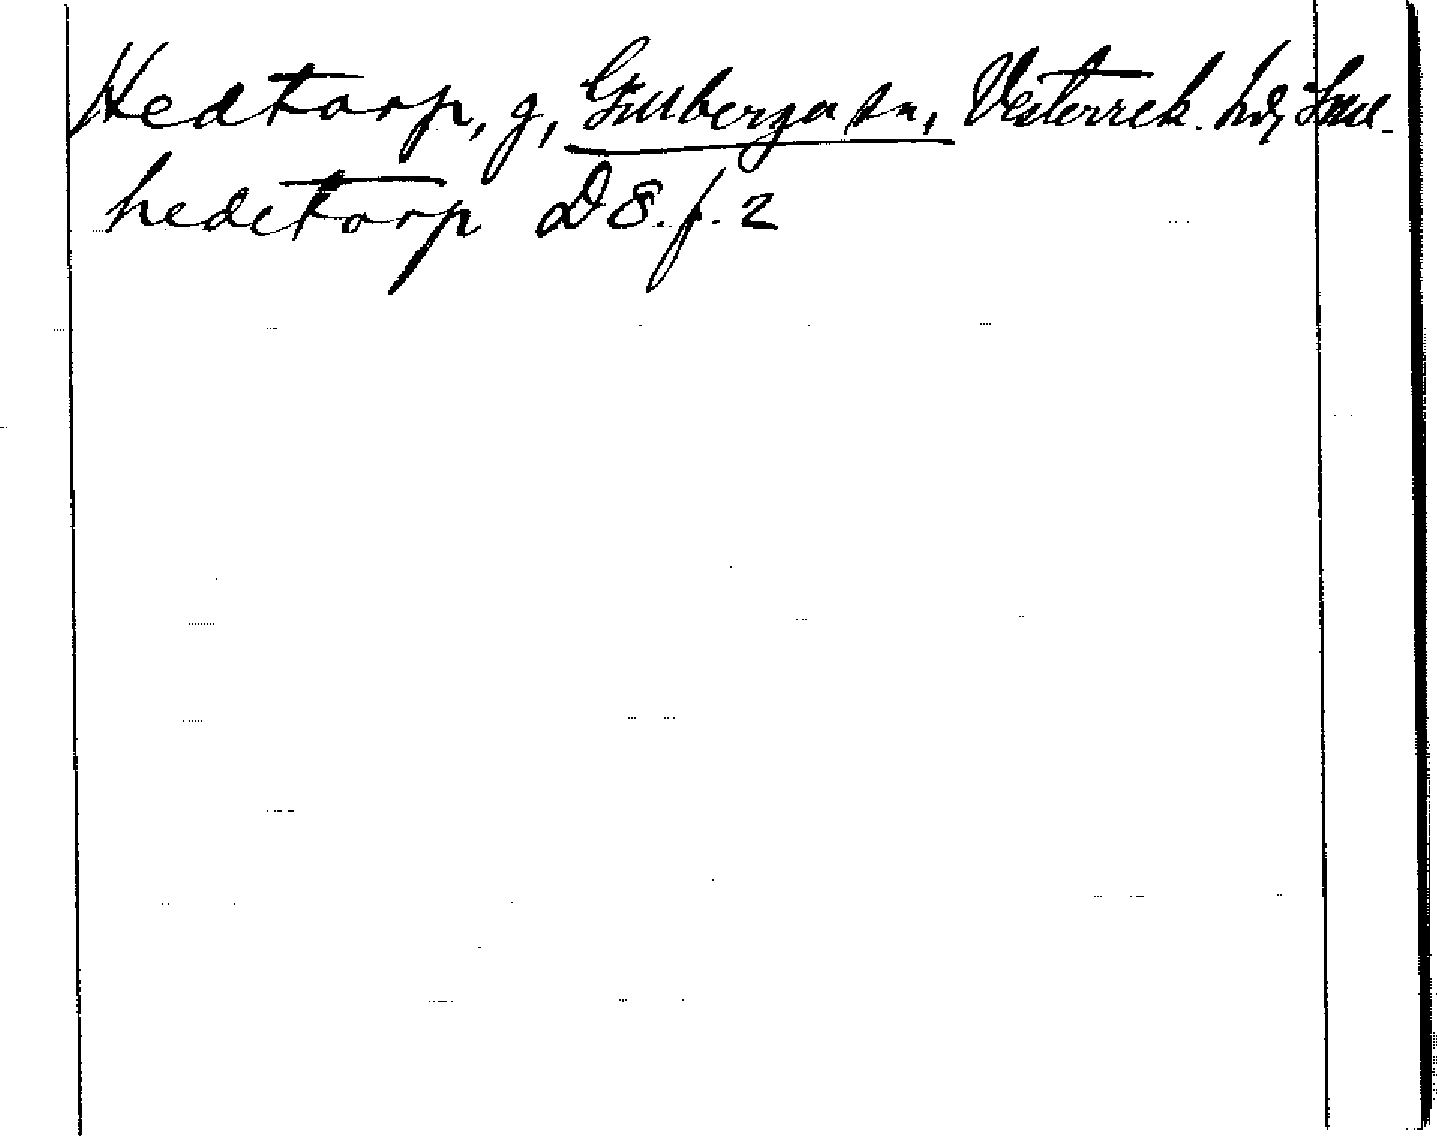 Hedtorp, g, Gillberga sn, Vesterrek. hd,
hedetorp D 8. f. 2